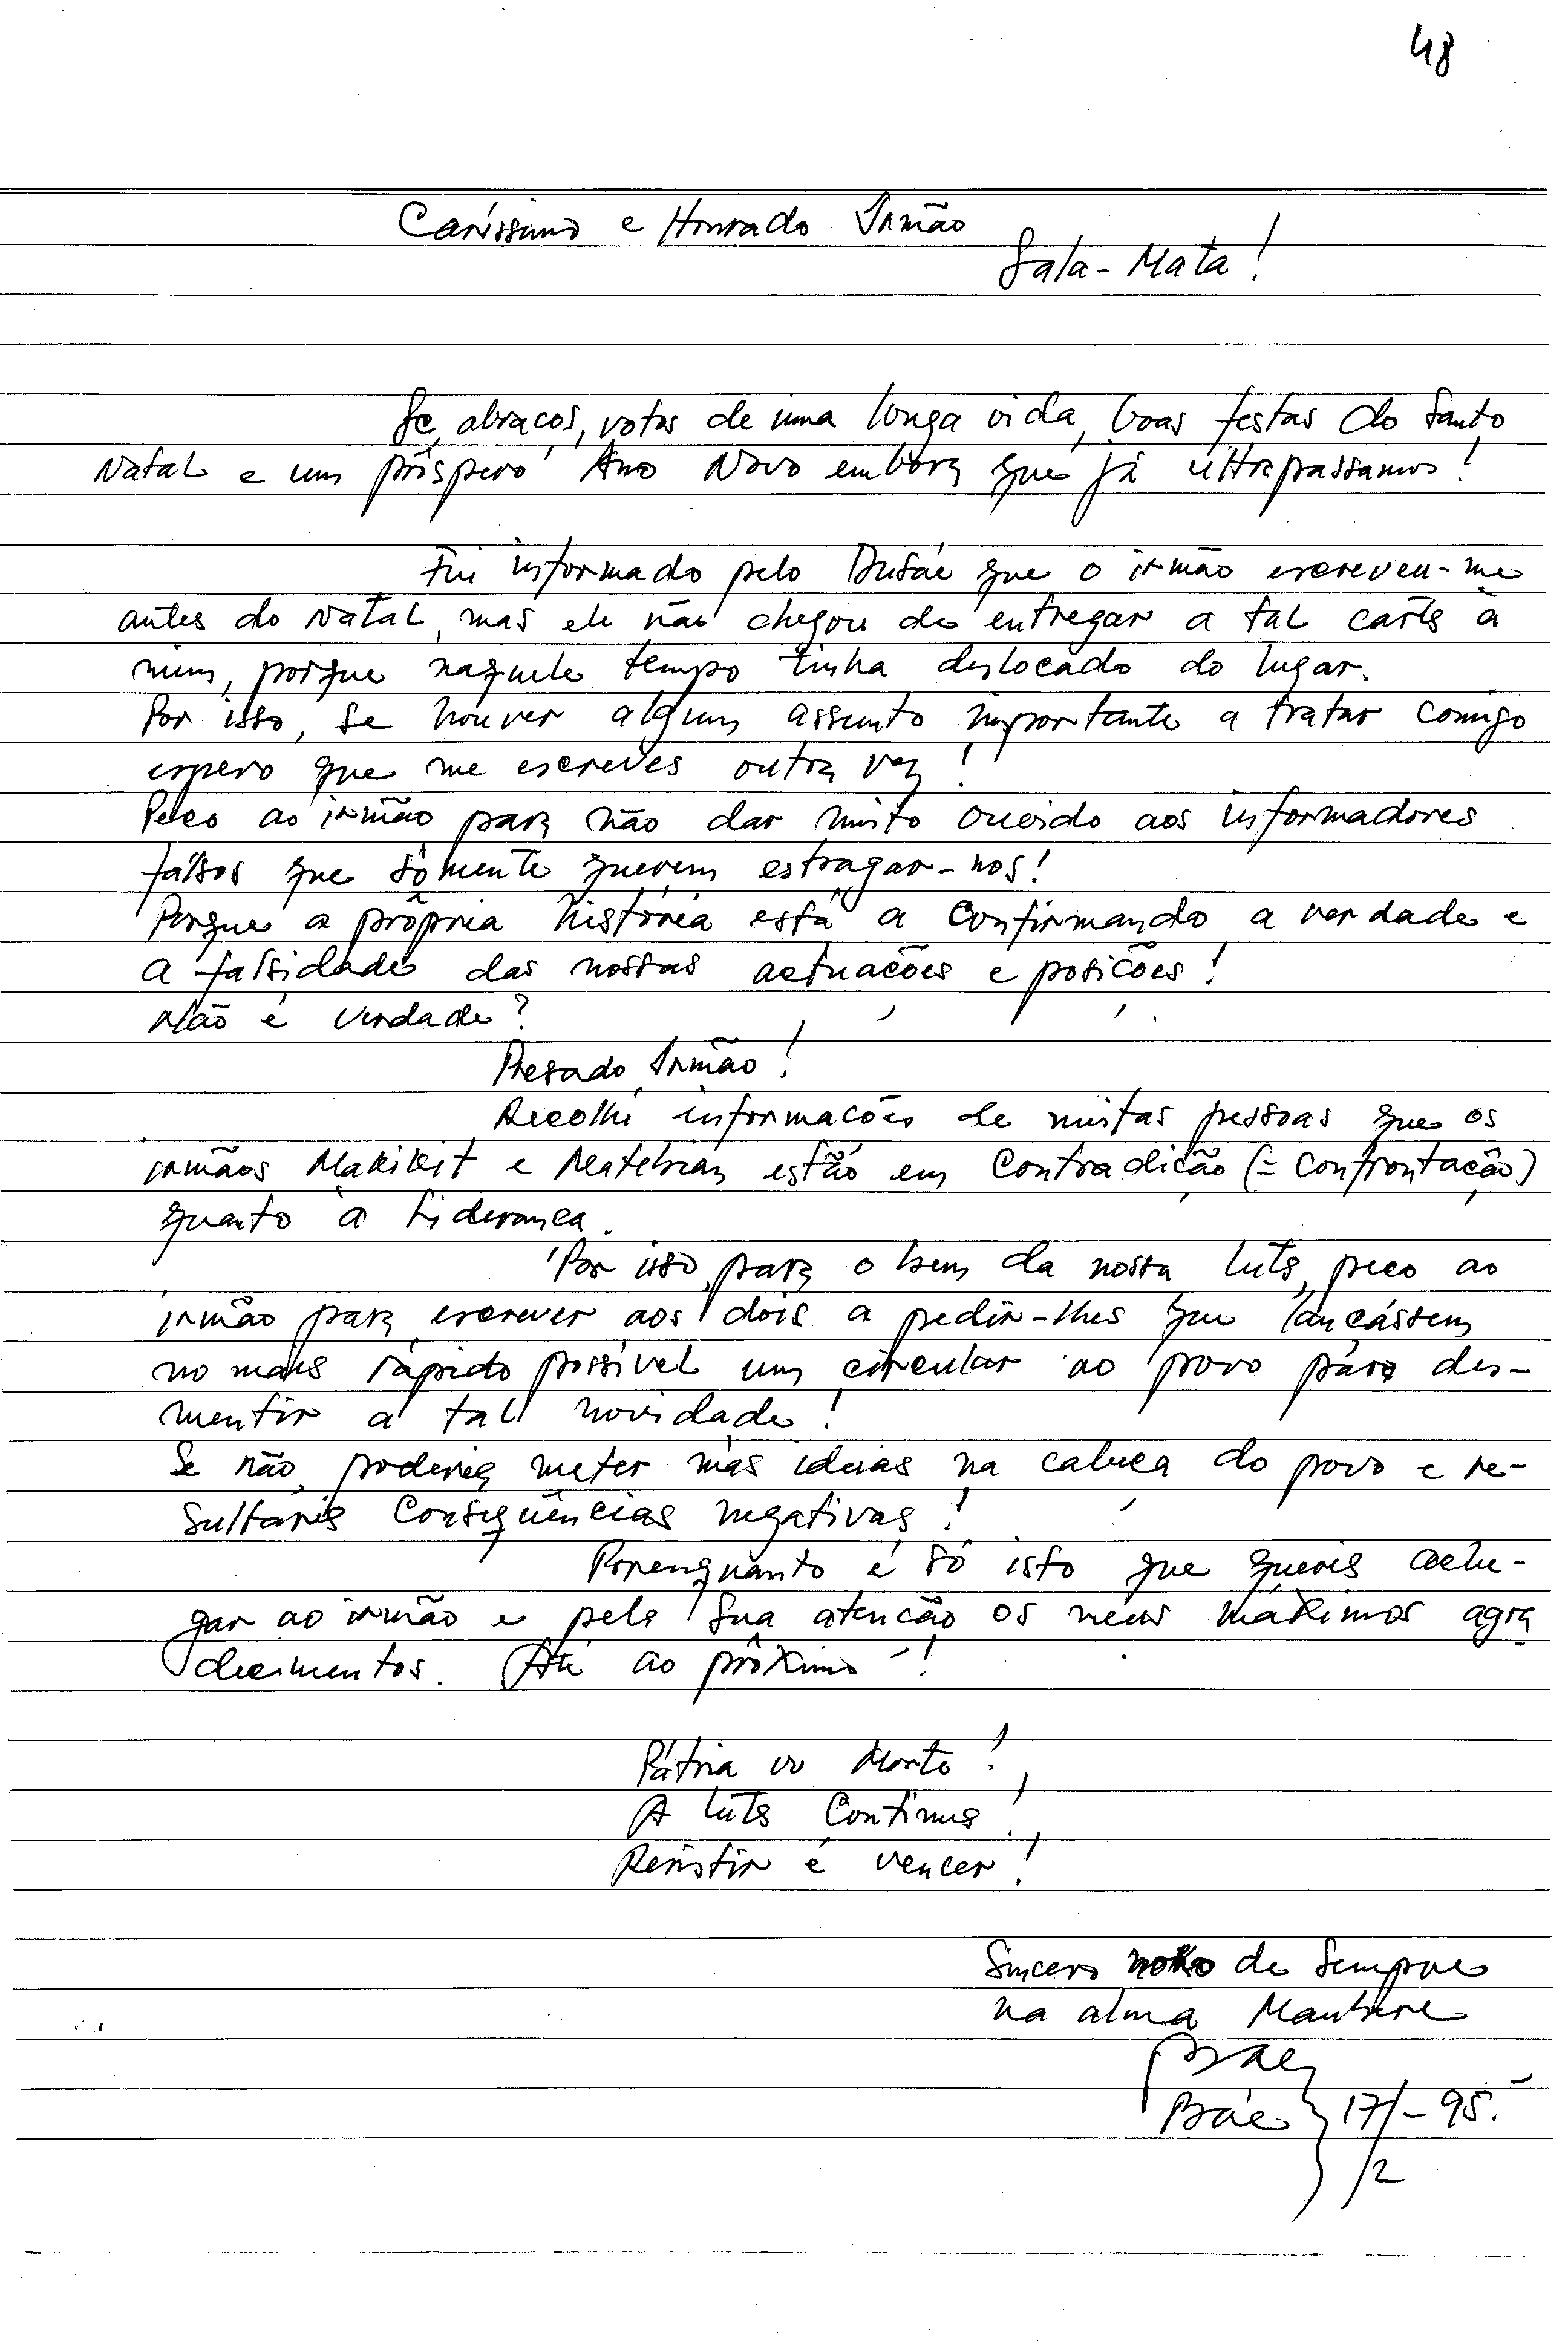 48
Caríssimo e Honrado Irmão
Sala-Mata!
Sc, abraços, votos de uma longa vida, boas festas do Santo
Natal e um próspero Ano Novo embora que já ultrapassamos!
Fui informado pelo que o irmão escreveu-me
antes do Natal, mas ele não chegou de entregar a tal carta à
mim, porque naquele tempo tinha deslocado do lugar.
Por isso, se houver algum assunto importante a tratar comigo
espero que me escreves outra vez!
Peço ao irmão para não dar muito ouvido aos informadores
falsos que sòmente querem estragar-nos!
Porque a própria história está a confirmando a verdade e
a falsidade das nossas actuações e posições!
Não é verdade?
Presado Irmão!
Recolhi informações de muitas pessoas que os
irmãos Makikit e Matebian estão em contradição (= confrontação)
quanto à liderança.
Por isso, para o bem da nossa luta, peço ao
irmão para escrever aos dois a pedir-lhes que lançássem
no mais rápido possível um circular ao povo para des-
mentir a tal novidade!
Se não, poderia meter más ideias na cabeça do povo e re-
sultaria consequências negativas!
Porenquanto é só isto que queria
ao irmão e pela sua atenção os meus máximos agra
decimentos. Até ao próximo!
Pátria ou Morte!
A luta Continua!
Resistir é vencer!
Sincero de Sempre
na alma Maubere
Bae
Báe 17/-95.
/2